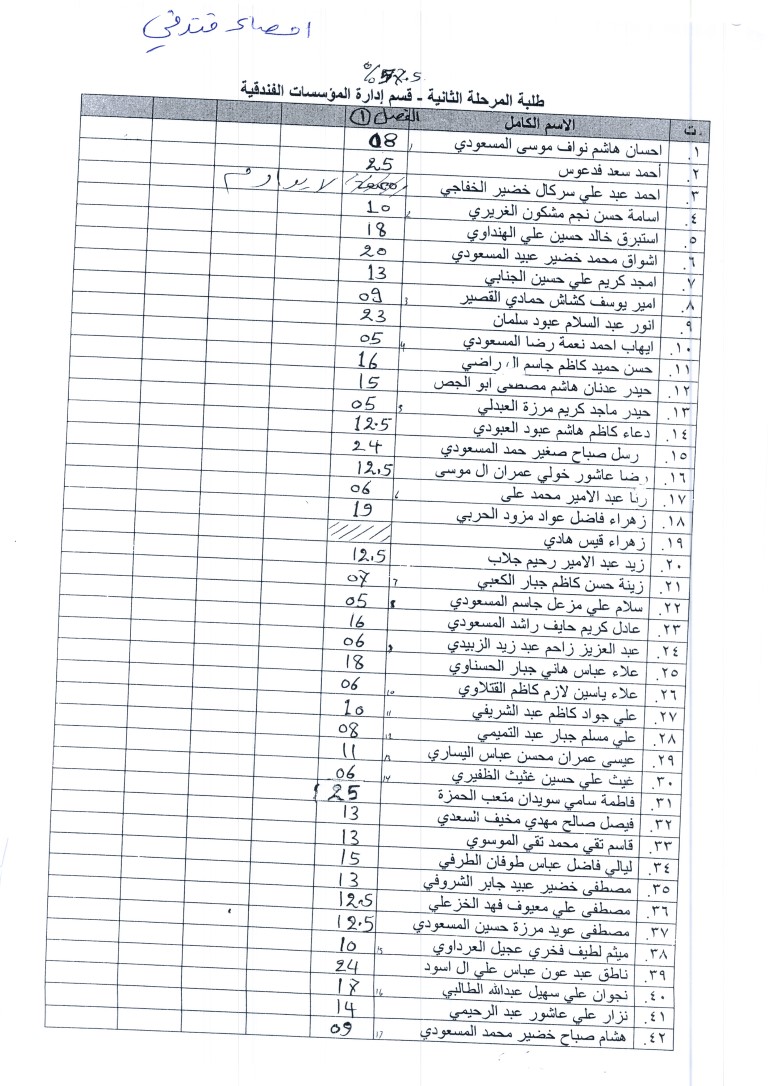 احصاء فندقي
%57.5
طلبة المرحلة الثانية - قسم إدارة المؤسسات الفندقية
ت. الاسم الكامل الفصل (١)
١. احسان هاشم نواف موسى المسعودي 08
٢. أحمد سعد فدعوس 25
٣. احمد عبد علي سركال خضير الخفاجي لا يداوم
٤. اسامة حسن نجم مشكون الغريري 10
٥. استبرق خالد حسين علي الهنداوي 18
٦. اشواق محمد خضير عبيد المسعودي 20
٧. امجد كريم علي حسين الجنابي 13
٨. امير يوسف كشاش حمادي القصير 3 09
٩. انور عبد السلام عبود سلمان 23
١٠. ايهاب احمد نعمة رضا المسعودي 4 05
١١. حسن حميد كاظم جاسم ال راضي 16
١٢. حيدر عدنان هاشم مصطفى ابو الجص 15
١٣. حيدر ماجد كريم مرزة العبدلي 5 05
١٤. دعاء كاظم هاشم عبود العبودي 12.5
١٥. رسل صباح صغير حمد المسعودي 24
١٦. رضا عاشور خولي عمران ال موسى 12.5
١٧. رنا عبد الامير محمد علي 6 06
١٨. زهراء فاضل عواد مزود الحربي 19
١٩. زهراء قيس هادي
٢٠. زيد عبد الامير رحيم جلاب 12.5
٢١. زينة حسن كاظم جبار الكعبي 7 07
٢٢. سلام علي مزعل جاسم المسعودي 8 05
٢٣. عادل كريم حايف راشد المسعودي 16
٢٤. عبد العزيز زاحم عبد زيد الزبيدي 9 06
٢٥. علاء عباس هاني جبار الحسناوي 18
٢٦. علاء ياسين لازم كاظم القتلاوي 10 06
٢٧. علي جواد كاظم عبد الشريفي 11 10
٢٨. علي مسلم جبار عبد التميمي 12 08
٢٩. عيسى عمران محسن عباس اليساري 13 11
٣٠. غيث علي حسين غثيث الظفيري 14 06
٣١. فاطمة سامي سويدان متعب الحمزة 25
٣٢. فيصل صالح مهدي مخيف السعدي 13
٣٣. قاسم تقي محمد تقي الموسوي 13
٣٤. ليالي فاضل عباس طوفان الطرفي 15
٣٥. مصطفى خضير عبيد جابر الشروفي 13
٣٦. مصطفى علي معيوف فهد الخزعلي 12.5
٣٧. مصطفى عويد مرزة حسين المسعودي 12.5
٣٨. ميثم لطيف فخري عجيل العرداوي 15 10
٣٩. ناطق عبد عون عباس علي ال اسود 24
٤٠. نجوان علي سهيل عبدالله الطالبي 16 17
٤١. نزار علي عاشور عبد الرحيمي 14
٤٢. هشام صباح خضير محمد المسعودي 17 09